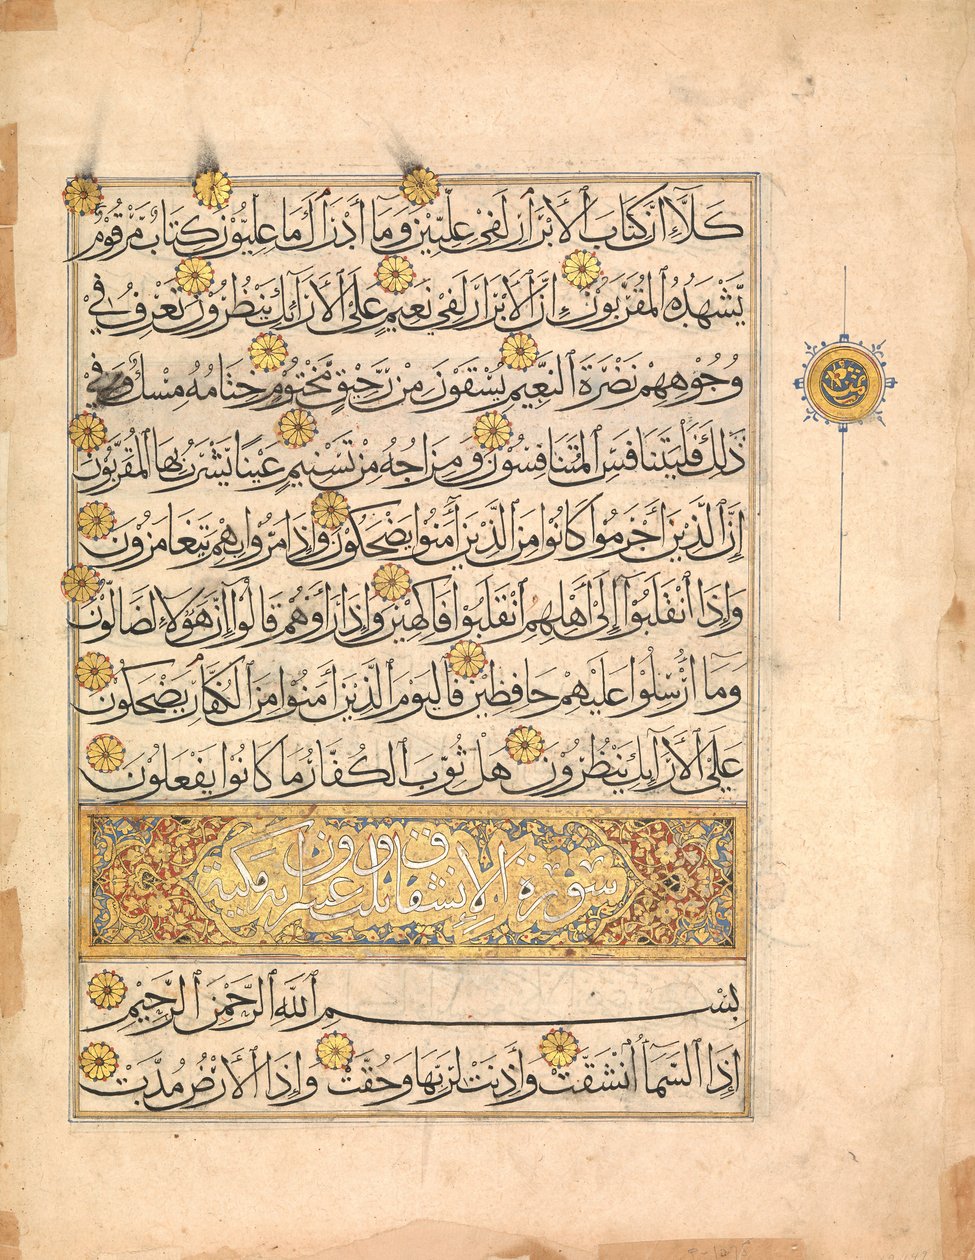 كَلَّآ إِنَّ كِتَابَ ٱلْأَبْرَارِ لَفِي عِلِّيِّينَ وَمَآ أَدْرَاكَ مَا عِلِّيُّونَ كِتَابٌ مَرْقُومٌ
يَشْهَدُهُ ٱلْمُقَرَّبُونَ إِنَّ ٱلْأَبْرَارَ لَفِي نَعِيمٍ عَلَى ٱلْأَرَآئِكِ يَنْظُرُونَ تَعْرِفُ فِي
وُجُوهِهِمْ نَضْرَةَ ٱلنَّعِيمِ يُسْقَوْنَ مِنْ رَحِيقٍ مَّخْتُومٍ خِتَامُهُ مِسْكٌ وَفِي
ذَٰلِكَ فَلْيَتَنَافَسِ ٱلْمُتَنَافِسُونَ وَمِزَاجُهُ مِنْ تَسْنِيمٍ عَيْنًا يَشْرَبُ بِهَا ٱلْمُقَرَّبُونَ
إِنَّ ٱلَّذِينَ أَجْرَمُوا كَانُوا مِنَ ٱلَّذِينَ آمَنُوا يَضْحَكُونَ وَإِذَا مَرُّوا بِهِمْ يَتَغَامَزُونَ
وَإِذَا ٱنْقَلَبُوآ إِلَىٰ أَهْلِهِمُ ٱنْقَلَبُوا فَاكِهِينَ وَإِذَا رَأَوْهُمْ قَالُوآ إِنَّ هَٰؤُلَآءِ لَضَآلُّونَ
وَمَآ أُرْسِلُوا عَلَيْهِمْ حَافِظِينَ فَٱلْيَوْمَ ٱلَّذِينَ آمَنُوا مِنَ ٱلْكُفَّارِ يَضْحَكُونَ
عَلَى ٱلْأَرَآئِكِ يَنْظُرُونَ هَلْ ثُوِّبَ ٱلْكُفَّارُ مَا كَانُوا يَفْعَلُونَ
سورة الانشقاق ثلث وعشرون آية مكية
بِسْمِ ٱللَّهِ ٱلرَّحْمَٰنِ ٱلرَّحِيمِ
إِذَا ٱلسَّمَآءُ ٱنْشَقَّتْ وَأَذِنَتْ لِرَبِّهَا وَحُقَّتْ وَإِذَا ٱلْأَرْضُ مُدَّتْ